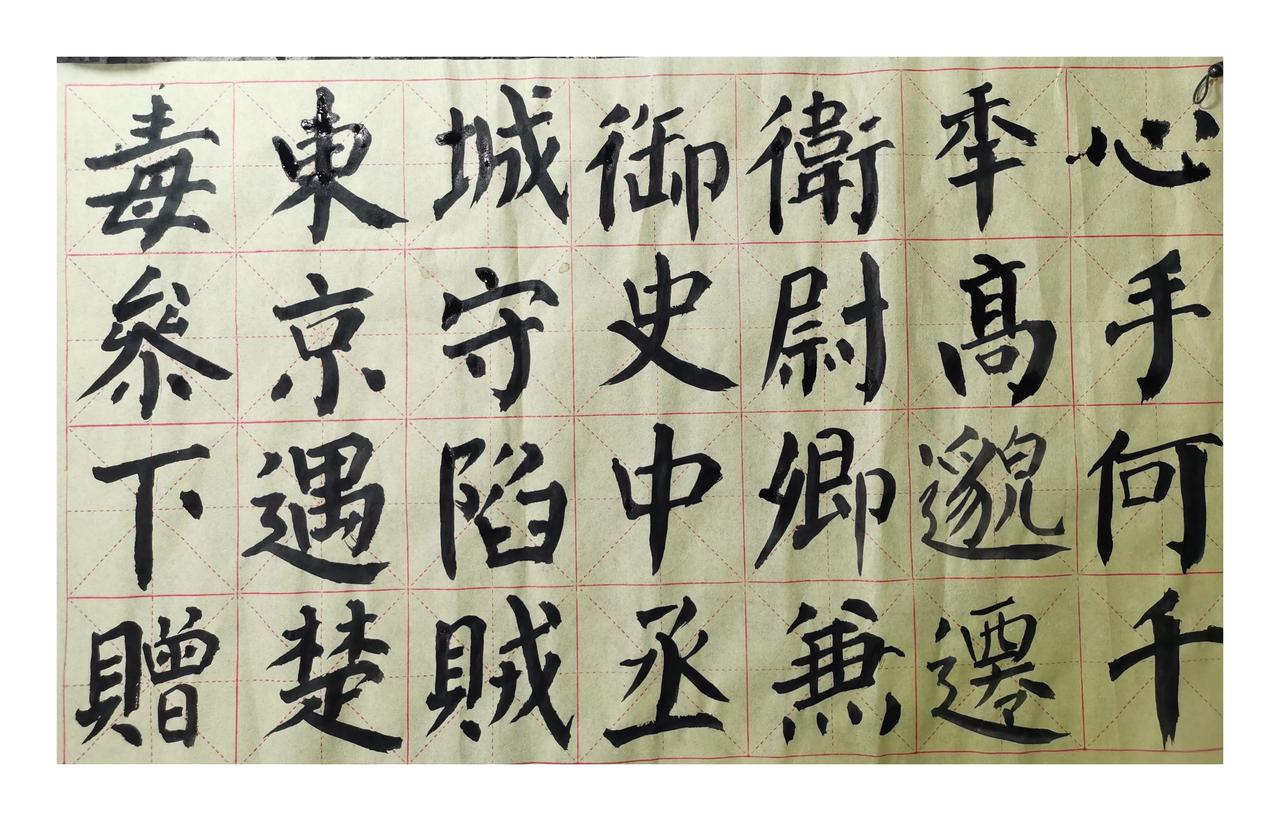 心手何千
年髙邈遷
衛尉卿兼
御史中丞
城守陷賊
東京遇楚
毒參下贈